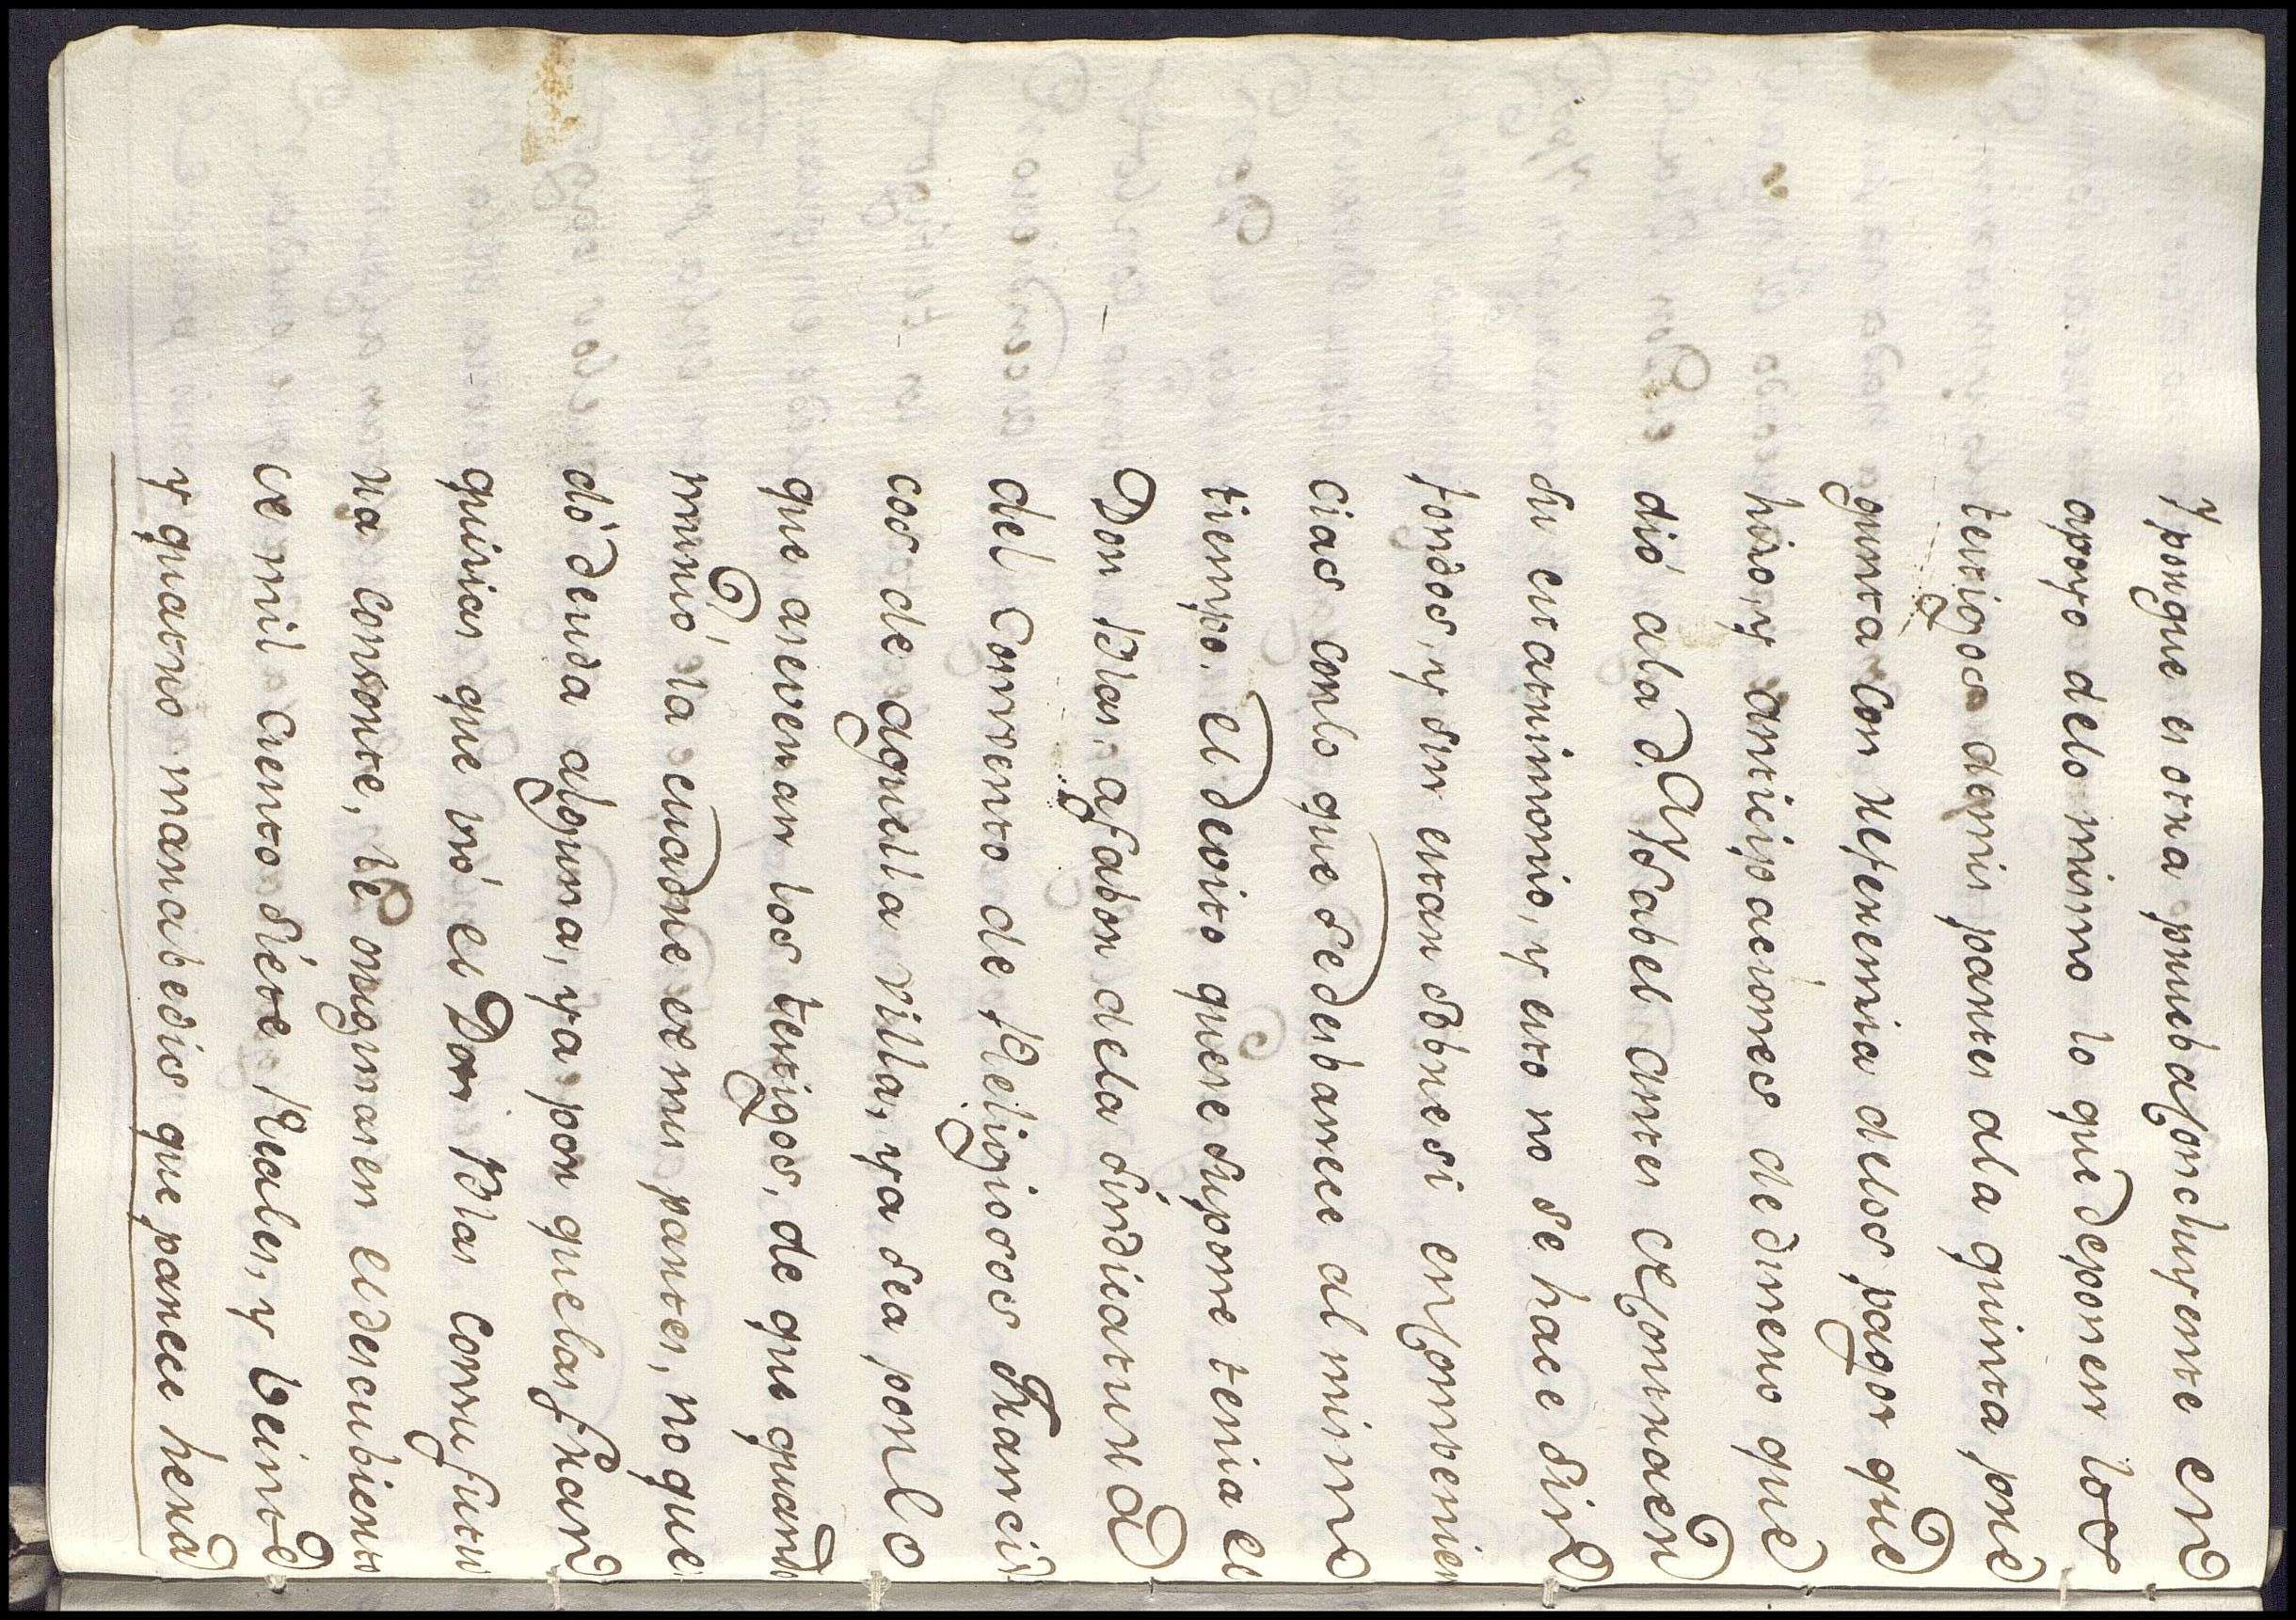 y porque es otra prueba Concluyente en
apoyo delo mismo lo que deponen los
testigos demis partes ala quinta pre
gunta Con referencia delos pagos que
hizo, y anticipaciones de dinero que
dió ala D. Ysabel antes de Contraer
su matrimonio, y esto no se hace sin
fondos, y sin estar sobre si en Combenien
cias conlo que se desbanece al mismo
tiempo. el devito quese supone tenia el
Don Blas. afabor dela sindicatura
del Convento de Religiosos Francis
cos de aquella villa, ya sea porlo
que aseveran los testigos, de que quando
murió, la madre de mis partes, no que
dó deuda alguna, ya por que las fran
quicias que vió el Don Blas Consufutu
ra consorte, le originaren el descubierto
de mil ciento siete Reales, y beinte
y quatro marabedis que parece hera